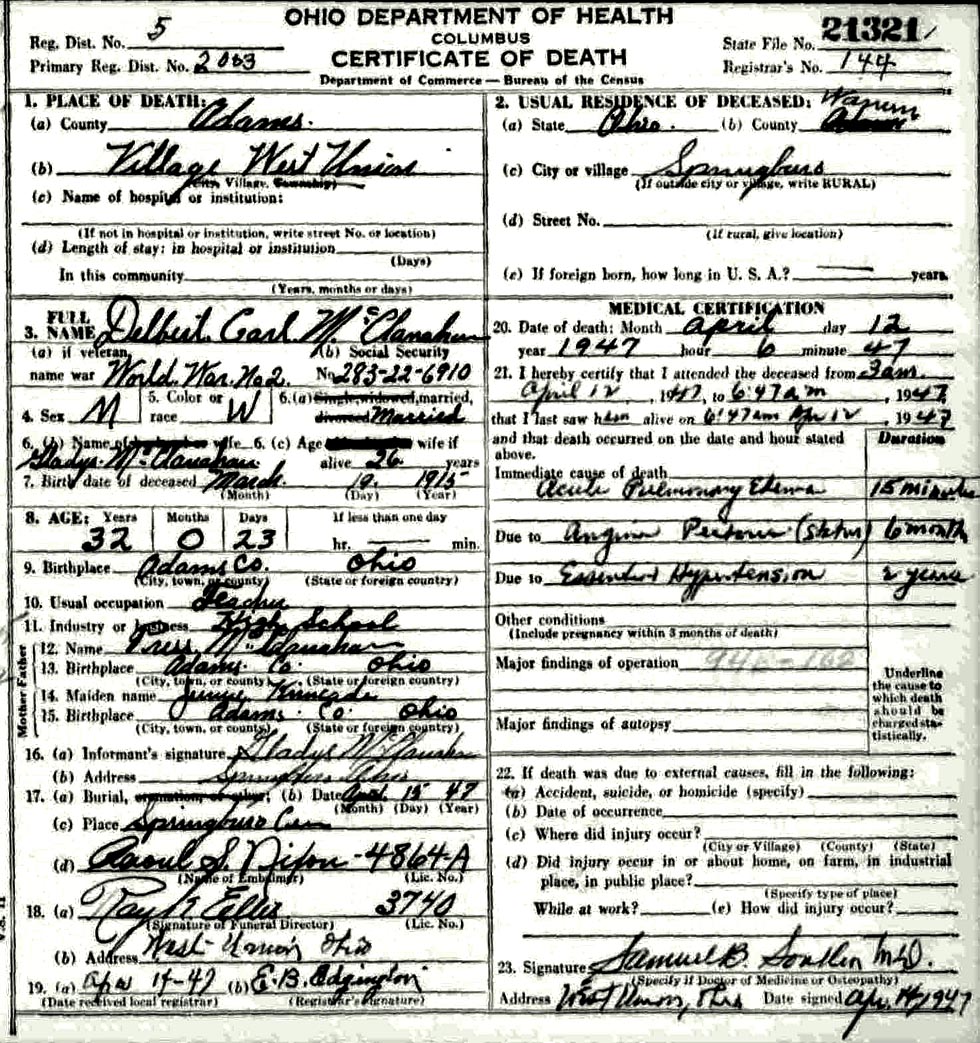 OHIO DEPARTMENT OF HEALTH
COLUMBUS
CERTIFICATE OF DEATH
Department of Commerce — Bureau of the Census
Reg. Dist. No. 5
Primary Reg. Dist. No. 2003
State File No. 21321
Registrar's No. 144
1. PLACE OF DEATH:
(a) County Adams.
(b) Village West Union
(City, Village, Township)
(c) Name of hospital or institution:
(If not in hospital or institution, write street No. or location)
(d) Length of stay: in hospital or institution
(Days)
In this community
(Years, months or days)
2. USUAL RESIDENCE OF DECEASED:
(a) State Ohio. (b) County Warren
(c) City or village Springboro
(If outside city or village, write RURAL)
(d) Street No.
(If rural, give location)
(e) If foreign born, how long in U. S. A.? — years.
3. FULL NAME Delbert Carl McClanahan
(a) if veteran, name war World War No 2. (b) Social Security No. 283-22-6910
4. Sex M 5. Color or race W 6. (a) Single, widowed, married, divorced Married
6. (b) Name of wife Gladys McClanahan 6. (c) Age wife if alive 26 years
7. Birth date of deceased March. 19. 1915
(Month) (Day) (Year)
8. AGE: Years 32 Months 0 Days 23 If less than one day hr. — min.
9. Birthplace Adams Co. Ohio
(City, town, or county) (State or foreign country)
10. Usual occupation Teacher
11. Industry or business High School
Mother Father
12. Name McClanahan
13. Birthplace Adams Co. Ohio
(City, town, or county) (State or foreign country)
14. Maiden name Jennie Kincade
15. Birthplace Adams Co Ohio
(City, town, or county) (State or foreign country)
16. (a) Informant's signature Gladys McClanahan
(b) Address Springboro Ohio
17. (a) Burial, cremation, or other; (b) Date April 15 47
(Month) (Day) (Year)
(c) Place Springboro Cem
(d) Raoul S. Dixon - 4864-A
(Name of Embalmer) (Lic. No.)
18. (a) Ray Ellis 3740
(Signature of Funeral Director) (Lic. No.)
(b) Address West Union Ohio
19. (a) Apr 14-47 (b) E. B. Edgington
(Date received local registrar) (Registrar's signature)
MEDICAL CERTIFICATION
20. Date of death: Month April day 12
year 1947 hour 6 minute 47
21. I hereby certify that I attended the deceased from 3am.
April 12, 1947, to 6:47am, 1947
that I last saw him alive on 6:47am Apr 12, 1947
and that death occurred on the date and hour stated above.
Duration
Immediate cause of death
Acute Pulmonary Edema 15 minutes
Due to Angina Pectoris (Status) 6 months
Due to Essential Hypertension 2 years
Other conditions
(Include pregnancy within 3 months of death)
Major findings of operation
Major findings of autopsy
Underline the cause to which death should be charged statistically.
22. If death was due to external causes, fill in the following:
(a) Accident, suicide, or homicide (specify)
(b) Date of occurrence
(c) Where did injury occur?
(City or Village) (County) (State)
(d) Did injury occur in or about home, on farm, in industrial
place, in public place?
(Specify type of place)
While at work? (e) How did injury occur?
23. Signature Samuel B. M.D.
(Specify if Doctor of Medicine or Osteopathy)
Address West Union, Ohio Date signed Apr. 14, 1947